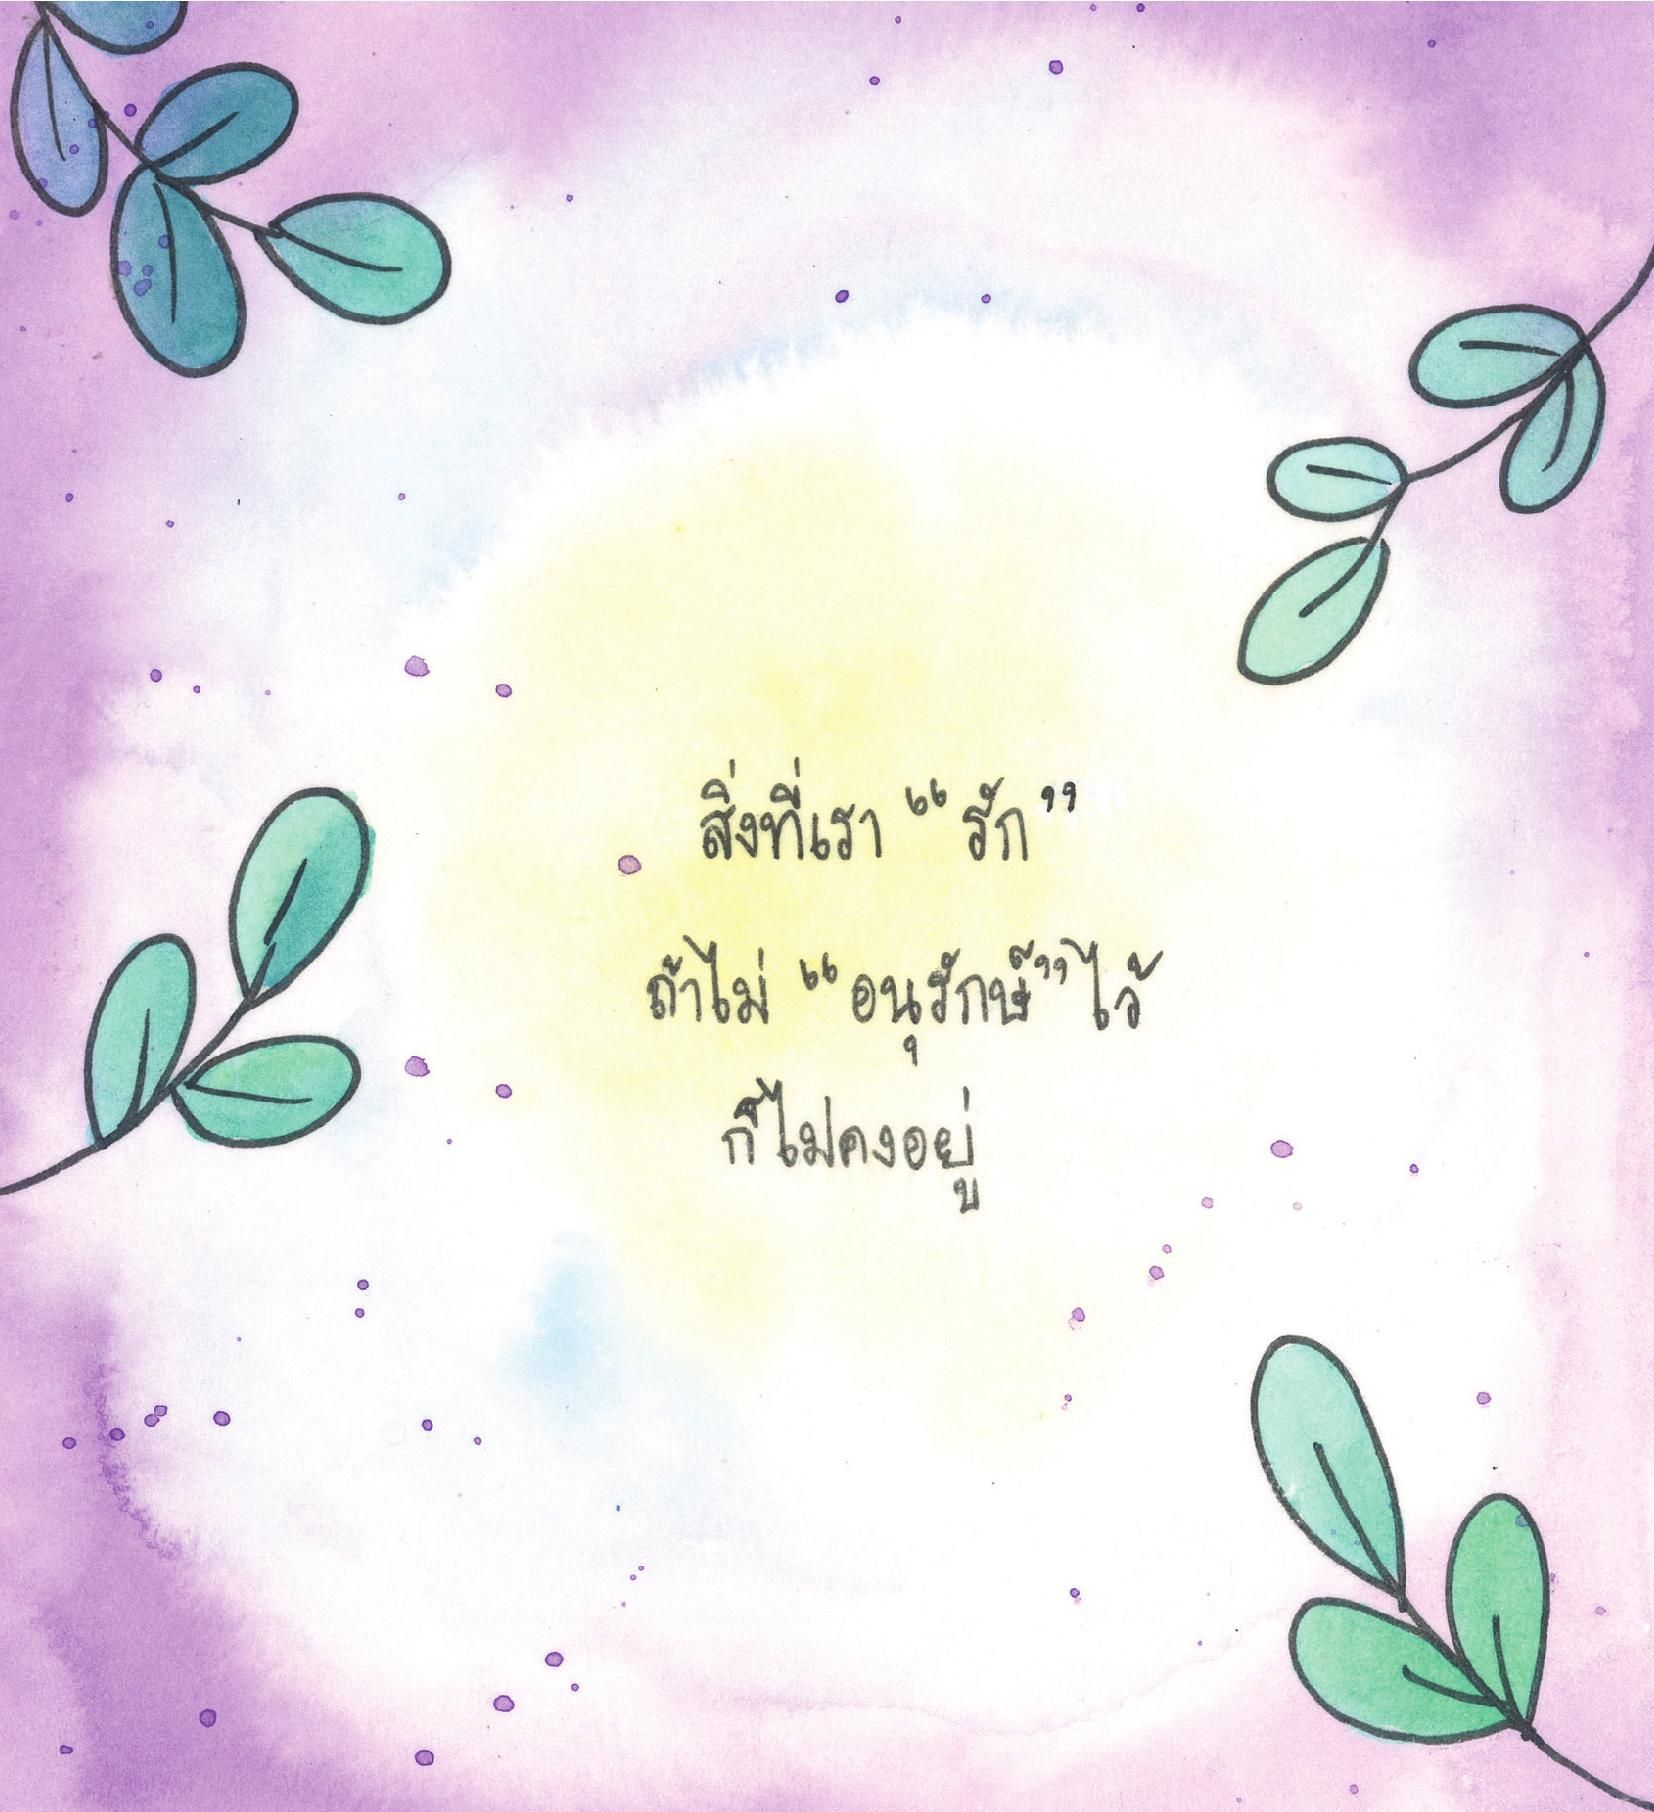 สิ่งที่เรา “รัก”
ถ้าไม่ “อนุรักษ์” ไว้
ก็ไม่คงอยู่